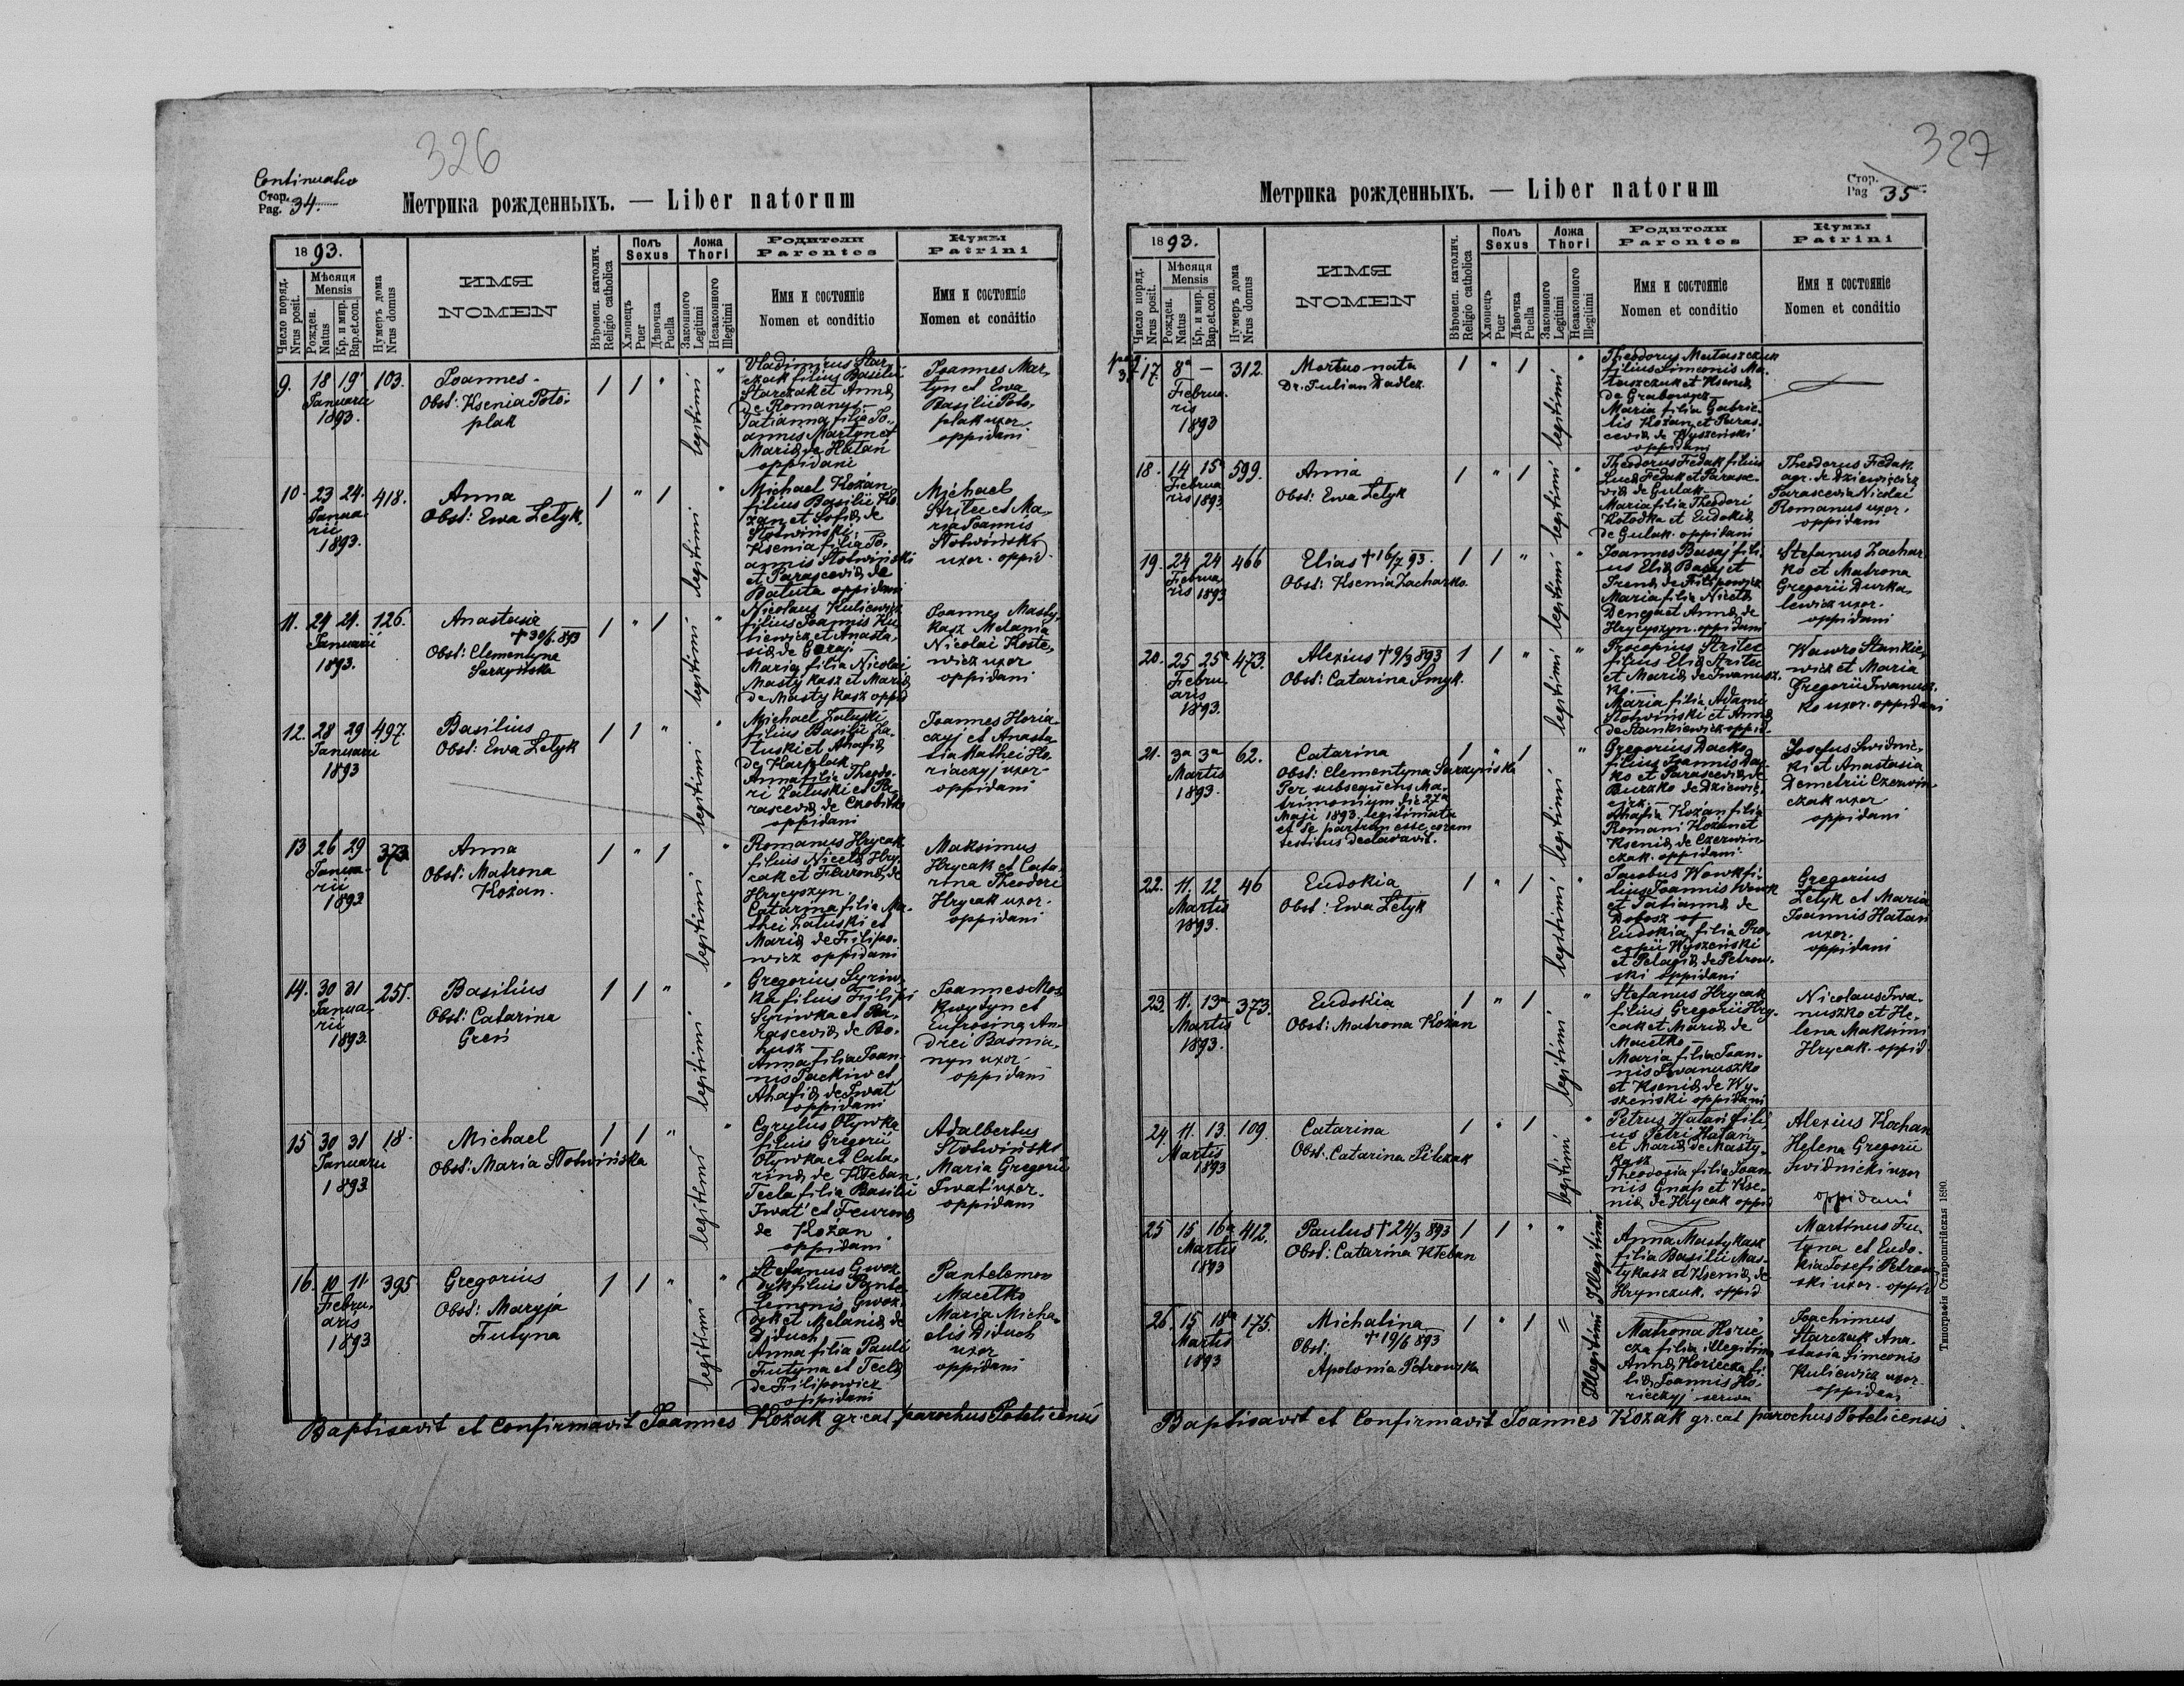 326
Continuatio
Стор. Pag. 34.
Метрика рожденныхъ. — Liber natorum
1893.
Число поряд. Nrus posit.
Мѣсяця Mensis
Рожден. Natus
Кр. и мир. Bap. et con.
Нумеръ дома Nrus domus
ИМЯ
NOMEN
Вѣроисп. католич. Religio catholica
Полъ Sexus
Хлопець Puer
Дѣвочка Puella
Ложа Thori
Законного Legitimi
Незаконного Illegitimi
Родители
Parentes
Имя и состоянiе
Nomen et conditio
Кумы
Patrini
Имя и состоянiе
Nomen et conditio
9. 18 19 Januarii 1893. 103.
Joannes
Obst: Ksenia Poto-
plak
1 1 "
legitimi "
Vladimirus Star-
czak filius Basilii
Starczak et Annæ
de Romanys
Tatianna filia Jo-
annis Martyn et
Mariæ de Hatan
oppidani
Joannes Mar-
tyn et Ewa
Basilii Poto-
plak uxor
oppidani
10. 23 24. Januarii 1893. 418.
Anna
Obst: Ewa Zetyk.
1 " 1
legitimi "
Michael Kozan
filius Basilii Ko-
zan et Sofiæ de
Stotwinski
Ksenia filia Jo-
annis Stotwiński
et Parasceviæ de
Batuta oppidani
Michael
Stritec et Ma-
ria Joannis
Stotwiński
uxor. oppid.
11. 24 24. Januarii 1893. 126.
Anastasia
+30/6 893
Obst: Clementyna
Sarzyńska
1 " 1
legitimi "
Nicolaus Kuliewicz
filius Joannis Ku-
liewicz et Anasta-
siæ de Garaj
Maria filia Nicolai
Mastykasz et Mariæ
de Mastykasz oppid
Joannes Masty-
kasz Melania
Nicolai Koste-
wicz uxor
oppidani
12. 28 29 Januarii 1893 497.
Basilius
Obst: Ewa Zetyk
1 1 "
legitimi "
Michael Zaluski
filius Basilii Za-
tuski et Ahafiæ
de Karplak
Anna filia Theodo-
ri Zaluski et Pa-
rasceviæ de
oppidani
Joannes Horia-
czyj et Anasta-
sia Mathei Ho-
riaczyj uxor
oppidani
13 26 29 Januarii 1893 373.
Anna
Obst: Matrona
Kozan.
1 " 1
legitimi "
Romanus Hrycak
filius Nicetæ Hry-
cak et Fewroniæ de
Hrycyszyn.
Catarina filia Ma-
thei Zatuski et
Mariæ de Filipo-
wicz oppidani
Maksimus
Hrycak et Cata-
rina Theodori
Hrycak uxor.
oppidani
14. 30 31 Januarii 1893. 251.
Basilius
Obst: Catarina
Greń
1 1 "
legitimi "
Gregorius Syriw-
ka filius Filipi
Syriwka et Pa-
rasceviæ de Bo-
husz
Anna filia Joan-
nis Jackiw et
Ahafiæ de Iwat
oppidani
Joannes Mos-
kwytyn et
Eufrosina An-
drei Basnia-
nyn uxor.
oppidani
15 30 31 Januarii 1893 18.
Michael
Obst: Maria Stotwińska
1 1 "
legitimi "
Cyrylus Otywka
filius Gregorii
Otywka et Cata-
rinæ de Kteban.
Tecla filia Basilii
Iwat' et Fewroniæ
de Kozan
oppidani
Adalbertus
Stotwiński
Maria Gregorii
Iwat' uxor.
oppidani
16. 10 11 Februaris 1893 395
Gregorius
Obst: Maryja
Futyna
1 1 "
legitimi "
Stefanus Gwoz-
dyk filius Pante-
lemonis Gwoz-
dyk et Melaniæ de
Diduch
Anna filia Pauli
Futyna et Teclæ
de Filipowicz
oppidani
Pantelemon
Macetko
Maria Micha-
elis Diduch
uxor
oppidani
Baptisavit et Confirmavit Joannes Kozak gr. cat. parochus Potelicensis
327
Стор. Pag 35
Метрика рожденныхъ. — Liber natorum
1893.
Число поряд. Nrus posit.
Мѣсяця Mensis
Рожден. Natus
Кр. и мир. Bap. et con.
Нумеръ дома Nrus domus
ИМЯ
NOMEN
Вѣроисп. католич. Religio catholica
Полъ Sexus
Хлопець Puer
Дѣвочка Puella
Ложа Thori
Законного Legitimi
Незаконного Illegitimi
Родители
Parentes
Имя и состоянiе
Nomen et conditio
Кумы
Patrini
Имя и состоянiе
Nomen et conditio
17. 8ª — Februaris 1893 312.
Mortuo nata
Dr. Julian Dadlez
1 " 1
legitimi "
Theodorus Mataszczuk
filius Simeonis Ma-
taszczuk et Kseniæ
de Grabowycz
Maria filia Gabrie-
lis Kozan et Paras-
ceviæ de Wyszeński
oppidani
18. 14 15ª Februaris 1893 599.
Anna
Obst: Ewa Zetyk
1 " 1
legitimi "
Theodorus Fedak filius
Lucæ Fedak et Parasce-
viæ de Gulak
Maria filia Theodori
Kotodka et Eudokiæ
de Gulak. oppidani
Theodorus Fedak
agr. de Dziewięcirz
Parascevia Nicolai
Romanus uxor.
oppidani
19. 24 24 Februaris 1893 466
Elias +16/7 93.
Obst: Ksenia Zacharko.
1 1 "
legitimi "
Joannes Basaj fili-
us Eliæ Basaj et
Irenæ de Filipowicz
Maria filia Nicetæ
Denega et Annæ de
Hrycyszyn. oppidani
Stefanus Zachar-
ko et Matrona
Gregorii Durka-
lewicz uxor.
oppidani
20. 25 25ª Februaris 1893. 473.
Alexius +9/3 893
Obst: Catarina Smyk.
1 1 "
legitimi "
Procopius Stritec
filius Eliæ Stritec
et Mariæ de Iwanusz-
ko.
Maria filia Adami
Stotwiński et Annæ
de Stankiewicz oppid.
Wawro Stankie-
wicz et Maria
Gregorii Iwanusz-
ko uxor. oppidani
21. 3ª 3ª Martis 1893. 62.
Catarina
Obst: Clementyna Sarzyńska
Per subsequens Ma-
trimonium die 27ª
Maji 1893 legitimata
et se patrem esse coram
testibus declaravit.
1 " 1
legitimi "
Gregorius Dacko
filius Joannis Dac-
ko et Parasceviæ de
Burzko de Dziewię-
cirz.
Ahafia Kozan filia
Romani Kozan et
Kseniæ de Czerwin-
czak. oppidani
Josefus Swidnic-
ki et Anastasia
Demetrii Czerwin-
czak uxor
oppidani
22. 11. 12 Martis 1893. 46
Eudokia
Obst: Ewa Zetyk
1 " 1
legitimi "
Jacobus Wowk fi-
lius Joannis Wowk
et Tatiannæ de
Dobosz
Eudokia filia Pro-
copii Wyszeński
et Pelagiæ de Petrow-
ski oppidani
Gregorius
Zetyk et Maria
Joannis Hatan
uxor.
oppidani
23. 11. 13ª Martis 1893. 373.
Eudokia
Obst: Matrona Kozan
1 " 1
legitimi "
Stefanus Hrycak
filius Gregorii Hry-
cak et Mariæ de
Macetko
Maria filia Joan-
nis Iwanuszko
et Kseniæ de Wy-
szeński oppidani
Nicolaus Iwa-
nuszko et He-
lena Maksimi
Hrycak. oppid.
24. 11. 13 Martis 1893 109.
Catarina
Obst: Catarina Pilczak
1 " 1
legitimi "
Petrus Hatan fili-
us Petri Hatan
et Mariæ de Masty-
kasz
Theodosia filia Joan-
nis Gnap et Kse-
niæ de Hrycak oppid
Alexius Kochan
Helena Gregorii
Swidnicki uxor
oppidani
25 15 16ª Martis 1893 412.
Paulus +24/3 893
Obst: Catarina Kteban
1 1 "
" Illegitimi
Anna Mastykasz
filia Basilii Mas-
tykasz et Kseniæ de
Hrynczuk. oppid
Martinus Fu-
tyna et Eudo-
kia Josefi Petrow-
ski uxor. oppid
26. 15 18ª Martis 1893 175.
Michalina
+19/6 893
Obst:
Apolonia Petrowska
1 " 1
" Illegitimi
Matrona Horie-
cza filia illegitima
Annæ Horiecza fi-
liæ Joannis Ho-
rieczyj serva
Joachimus
Starczak Ana-
stasia Simeonis
Kuliewicz uxor.
oppidani
Baptisavit et Confirmavit Joannes Kozak gr. cat parochus Potelicensis
Типографія Ставропигійская 1890.